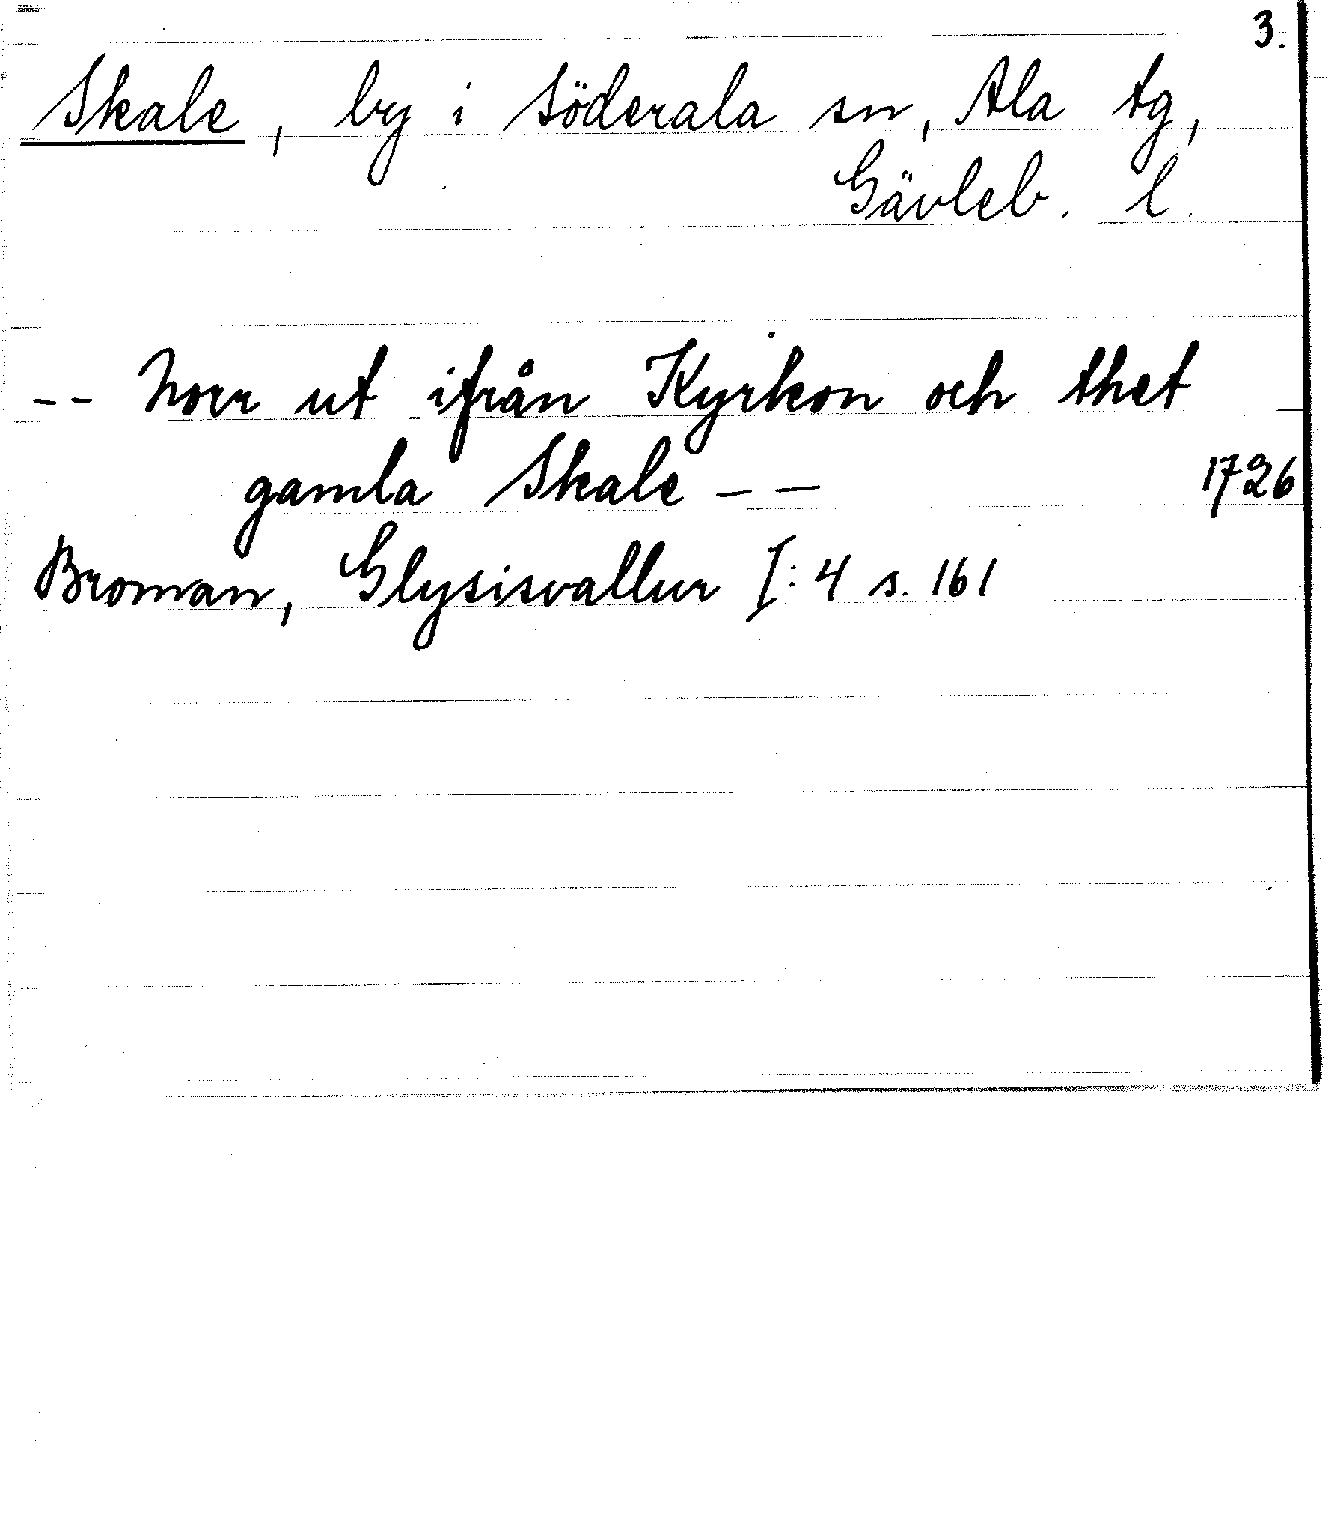 3.
Skale, by i Söderala sn, Ala tg,
Gävleb. l.
-- Norr ut ifrån Kyrkon och thet
gamla Skale -- 1726
Broman, Glysisvallur I:4 s. 161